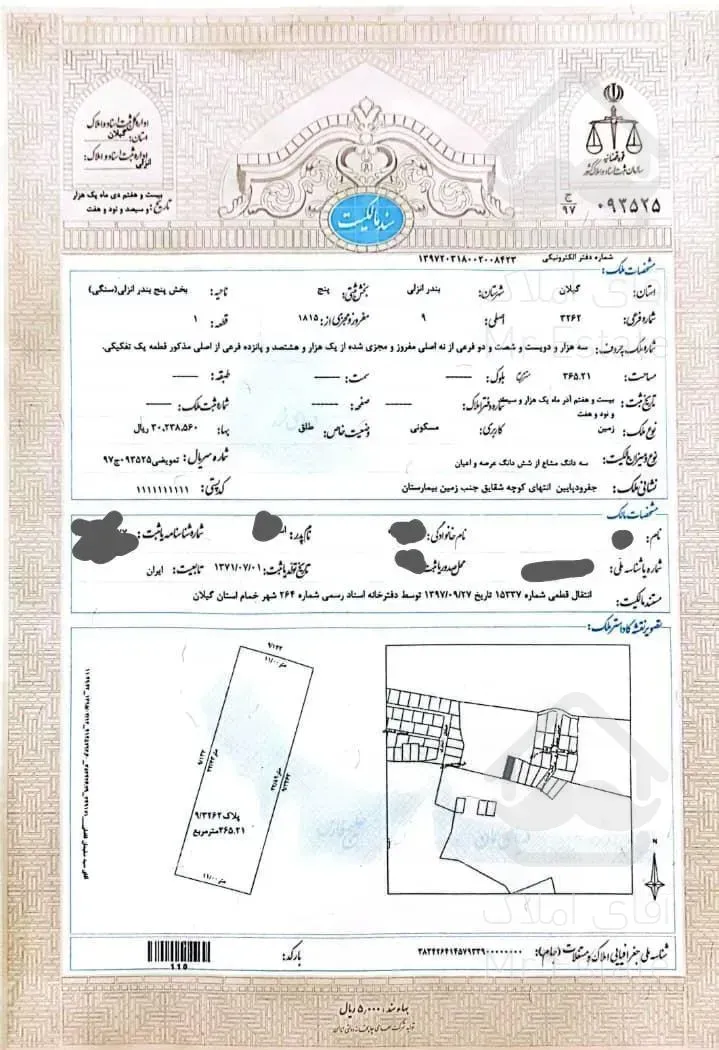 اداره کل ثبت اسناد و املاک
استان: گیلان
اداره ثبت اسناد و املاک:
انزلی
بیست و هفتم دی ماه یک هزار
تاریخ: و سیصد و نود و هفت
قوه قضائیه
سازمان ثبت اسناد و املاک کشور
ج ۹۷ ۰۹۳۵۲۵
سند مالکیت
شماره دفتر الکترونیکی ۱۳۹۷۲۰۳۱۸۰۰۲۰۰۸۴۲۳
مشخصات ملک:
استان: گیلان شهرستان: بندر انزلی بخش ثبتی: پنج ناحیه: بخش پنج بندر انزلی(سنگی)
شماره فرعی: ۳۲۶۲ اصلی: ۹ مفروز و مجزی از: ۱۸۱۵ قطعه: ۱
شماره ملک بحروف: سه هزار و دویست و شصت و دو فرعی از نه اصلی مفروز و مجزی شده از یک هزار و هشتصد و پانزده فرعی از اصلی مذکور قطعه یک تفکیکی.
مساحت: ۳۶۵.۲۱ مترمربع بلوک: —— سمت: —— طبقه: ——
تاریخ ثبت: بیست و هفتم آذر ماه یک هزار و سیصد و نود و هفت شماره دفتر املاک: —— صفحه: —— شماره ثبت ملک: ——
نوع ملک: زمین کاربری: مسکونی وضعیت خاص: طلق بهاء: ۳۰,۲۳۸,۵۶۰ ریال
نوع و میزان مالکیت: سه دانگ مشاع از شش دانگ عرصه و اعیان شماره سریال: تعویضی۰۹۳۵۲۵ج۹۷
نشانی ملک: جفرودپایین انتهای کوچه شقایق جنب زمین بیمارستان کد پستی: ۱۱۱۱۱۱۱۱۱۱
مشخصات مالک
نام: نام خانوادگی: نام پدر: شماره شناسنامه یا ثبت:
شماره یا شناسه ملی: محل صدور یا ثبت: تاریخ تولد یا ثبت: ۱۳۷۱/۰۷/۰۱ تابعیت: ایران
مستند مالکیت: انتقال قطعی شماره ۱۵۳۳۷ تاریخ ۱۳۹۷/۰۹/۲۷ توسط دفترخانه اسناد رسمی شماره ۲۶۴ شهر خمام استان گیلان
تصویر نقشه کاداستر ملک:
۹/۱۳۳
۱۱/۰۰متر
پلاک ۹/۳۲۶۲
۳۶۵.۲۱مترمربع
۱۱/۰۰متر
N
دریای عمان
خلیج فارس
شناسه ملی جغرافیایی املاک و مستغلات (جام): ۳۸۳۴۲۶۴۱۴۵۷۹۳۳۹۰۰۰۰۰۰۰۰
بارکد:
110
بهاء سند: ۵,۰۰۰ ریال
آقای املاک
Mr Estate
آقای املاک
Mr Estate